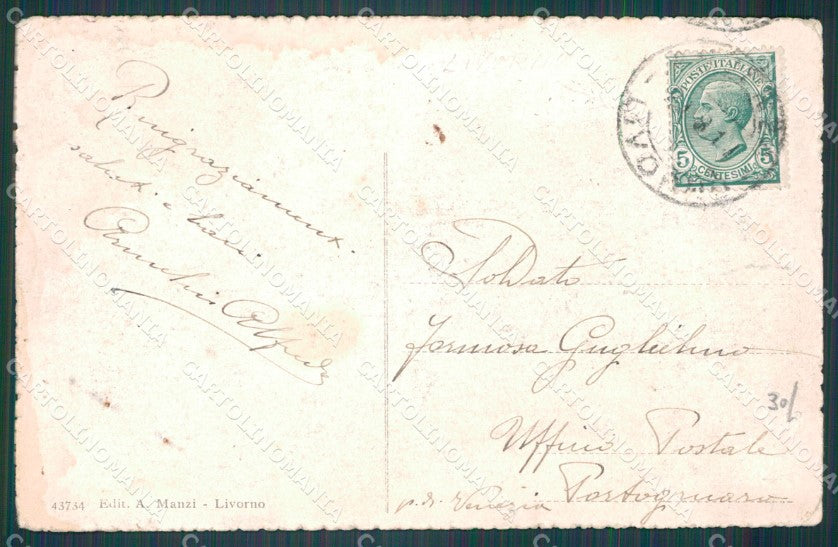 Ringraziamenti
saluti e baci
Alfredo
43734 Edit. A. Manzi - Livorno
POSTE ITALIANE
5 5
CENTESIMI
LIVORNO
Soldato
Formosa Guglielmo
Uffico Postale
Portogruaro
p. di Venezia
30/
CARTOLINOMANIA